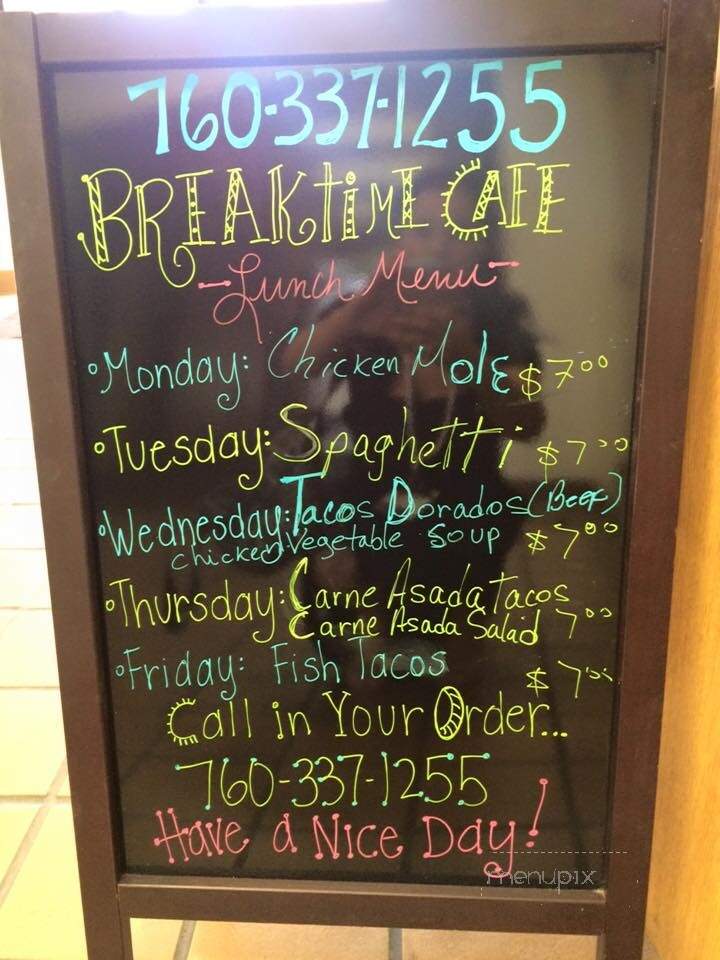 760-337-1255
BREAKTIME CAFE
Lunch Menu
Monday: Chicken Mole $7.00
Tuesday: Spaghetti $7.00
Wednesday: Tacos Dorados (Beef)
chicken Vegetable Soup $7.00
Thursday: Carne Asada Tacos
Carne Asada Salad 7.00
Friday: Fish Tacos $7.00
Call in Your Order...
760-337-1255
Have a Nice Day!
menupix